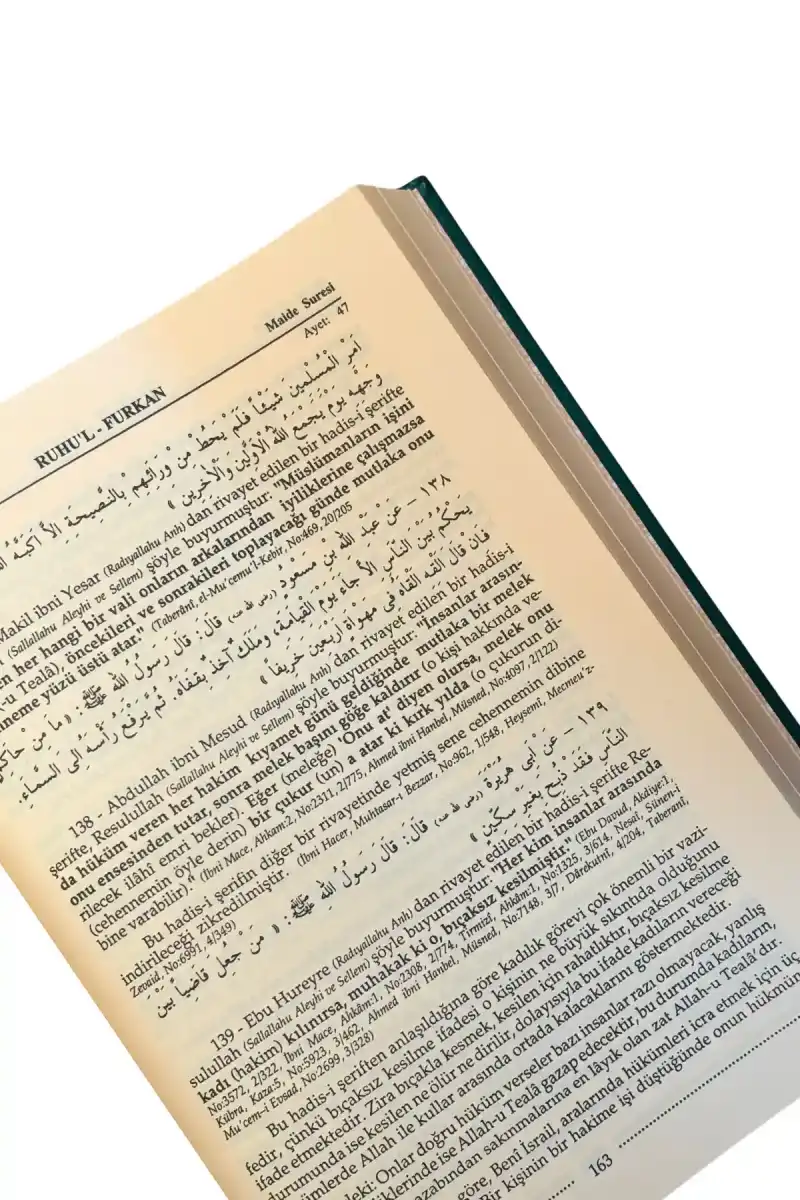 Maide Suresi
Ayet: 47
RUHU'L - FURKAN
اَمْرِ الْمُسْلِمِينَ شَيْئًا فَلَمْ يَحُطْ مِنْ وَرَائِهِمْ بِالنَّصِيحَةِ اِلاَّ اَكَبَّهُ
وَجْهِهِ يَوْمَ يَجْمَعُ اللّٰهُ الْاَوَّلِينَ وَالْاٰخِرِينَ ﴾
Makil ibni Yesar (Radıyallahu Anh) dan rivayet edilen bir hadis-i şerifte
(Sallallahu Aleyhi ve Sellem) şöyle buyurmuştur: "Müslümanların işini
her hangi bir vali onların arkalarından iyiliklerine çalışmazsa
Tealâ), öncekileri ve sonrakileri toplayacağı günde mutlaka onu
yüzü üstü atar." (Taberânî, el-Mu'cemu'l-Kebir, No:469, 20/205
١٣٨ – عَنْ عَبْدِ اللّٰهِ بْنِ مَسْعُودٍ (رضى الله عنه) قَالَ: قَالَ رَسُولُ اللّٰهِ ﷺ: «مَا مِنْ حَاكِمٍ
يَحْكُمُ بَيْنَ النَّاسِ اِلاَّ جَاءَ يَوْمَ الْقِيَامَةِ، وَمَلَكٌ اٰخِذٌ بِقَفَاهُ، ثُمَّ يَرْفَعُ رَأْسَهُ اِلَى السَّمَاءِ،
فَاِنْ قَالَ اَلْقِهْ اَلْقَاهُ فِى مَهْوَاةٍ اَرْبَعِينَ خَرِيفًا »
138 - Abdullah ibni Mesud (Radıyallahu Anh) dan rivayet edilen bir hadis-i
şerifte, Resulullah (Sallallahu Aleyhi ve Sellem) şöyle buyurmuştur: "İnsanlar arasın-
da hüküm veren her hakim kıyamet günü geldiğinde mutlaka bir melek
onu ensesinden tutar, sonra melek başını göğe kaldırır (o kişi hakkında ve-
rilecek ilâhî emri bekler). Eğer (meleğe) 'Onu at' diyen olursa, melek onu
(cehennemin öyle derin) bir çukur (un) a atar ki kırk yılda (o çukurun di-
bine varabilir)." (İbni Mace, Ahkam:2, No:2311, 2/775, Ahmed ibni Hanbel, Müsned, No:4097, 2/122)
Bu hadis-i şerifin diğer bir rivayetinde yetmiş sene cehennemin dibine
indirileceği zikredilmiştir. (İbni Hacer, Muhtasar-ı Bezzar, No:962, 1/548, Heysemî, Mecmeu'z-
Zevaid, No:6991, 4/349)
١٣٩ – عَنْ اَبِى هُرَيْرَةَ (رضى الله عنه) قَالَ: قَالَ رَسُولُ اللّٰهِ ﷺ: « مَنْ جُعِلَ قَاضِيًا بَيْنَ
النَّاسِ فَقَدْ ذُبِحَ بِغَيْرِ سِكِّينٍ »
139 - Ebu Hureyre (Radıyallahu Anh) dan rivayet edilen bir hadis-i şerifte Re-
sulullah (Sallallahu Aleyhi ve Sellem) şöyle buyurmuştur: "Her kim insanlar arasında
kadı (hakim) kılınırsa, muhakak ki o, bıçaksız kesilmiştir." (Ebu Davud, Akdiye:1,
No:3572, 2/322, İbni Mace, Ahkâm:1, No:2308, 2/774, Tirmizî, Ahkâm:1, No:1325, 3/614, Nesaî, Sünen-i
Kübra, Kaza:5, No:5923, 3/462, Ahmed ibni Hanbel, Müsned, No:7148, 3/7, Dârekutnî, 4/204, Taberanî,
Mu'cem-i Evsad, No:2699, 3/328)
Bu hadis-i şeriften anlaşıldığına göre kadılık görevi çok önemli bir vazi-
fedir, çünkü bıçaksız kesilme ifadesi, o kişinin ne büyük sıkıntıda olduğunu
ifade etmektedir. Zira bıçakla kesmek, kesilen için rahatlıktır, bıçaksız kesilme
durumunda ise kesilen ne ölür ne dirilir, dolayısıyla bu ifade kadıların vereceği
Allah ile kullar arasında ortada kalacaklarını göstermektedir.
Onlar doğru hüküm verseler bazı insanlar razı olmayacak, yanlış
ise Allah-u Tealâ gazap edecektir, bu durumda kadıların,
azabından sakınmalarına en lâyık olan zat Allah-u Tealâ'dır.
göre, Benî İsrail, aralarında hükümleri icra etmek için üç
Bir kişinin bir hakime işi düştüğünde onun hükmün
163